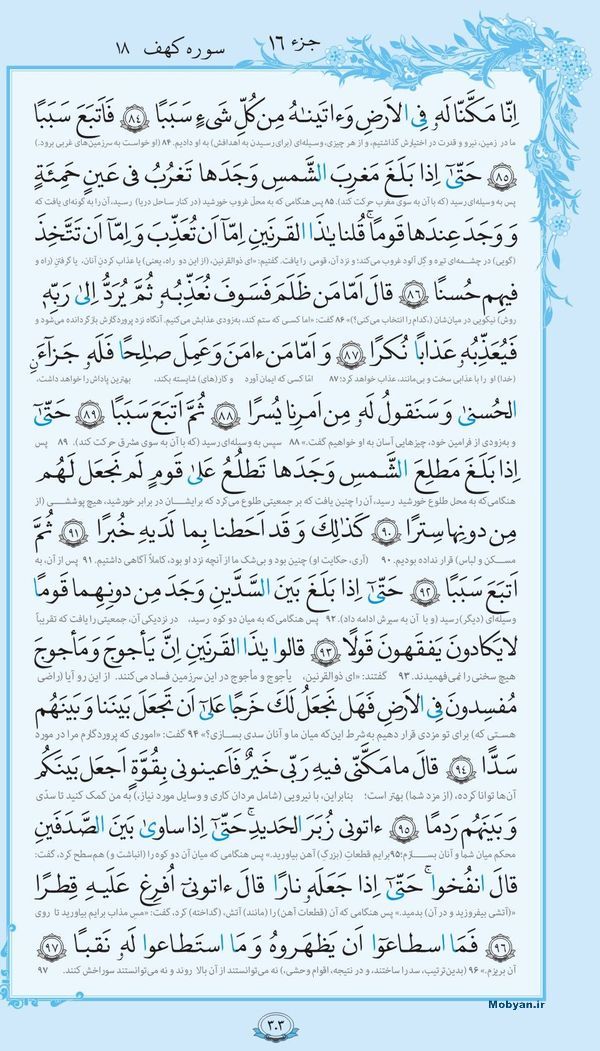 جزء ۱۶ سوره کهف ۱۸
اِنّا مَکَّنّا لَهُ فِی الاَرضِ وَءاتَینٰهُ مِن کُلِّ شَیءٍ سَبَبًا ﴿۸۴﴾ فَاَتبَعَ سَبَبًا
ما در زمین، نیرو و قدرت در اختیارش گذاشتیم، و از هر چیزی، وسیله‌ای (برای رسیدن به اهدافش) به او دادیم. ۸۴ (او خواست به سرزمین‌های غربی برود.)
﴿۸۵﴾ حَتّیٰٓ اِذا بَلَغَ مَغرِبَ الشَّمسِ وَجَدَها تَغرُبُ فی عَینٍ حَمِئَةٍ
پس به وسیله‌ای رسید (که با آن به سوی مغرب حرکت کند). ۸۵ پس هنگامی که به محلّ غروب خورشید (در کنار ساحل دریا) رسید، آن را به گونه‌ای یافت که
وَ وَجَدَ عِندَها قَومًا ۚ قُلنا یٰذَا القَرنَینِ اِمّآ اَن تُعَذِّبَ وَ اِمّآ اَن تَتَّخِذَ
(گویی) در چشمه‌ای تیره و گِل آلود غروب می‌کند؛ و نزد آن، قومی را یافت. گفتیم: «ای ذوالقرنین، (از این دو راه، یعنی) یا عذاب کردنِ آنان، یا گرفتنِ (راه و
فیهِم حُسنًا ﴿۸۶﴾ قالَ اَمّا مَن ظَلَمَ فَسَوفَ نُعَذِّبُهُ ثُمَّ یُرَدُّ اِلیٰ رَبِّهٖ
روشِ) نیکویی در میان‌شان (کدام را انتخاب می‌کنی؟)» ۸۶ گفت: «اما کسی که ستم کند، به‌زودی عذابش می‌کنیم. آنگاه نزد پروردگارش بازگردانده می‌شود و
فَیُعَذِّبُهُ عَذابًا نُکرًا ﴿۸۷﴾ وَ اَمّا مَن ءامَنَ وَ عَمِلَ صٰلِحًا فَلَهُ جَزآءَنِ
(خدا) او را با عذابی سخت و بی‌مانند، عذاب خواهد کرد؛ ۸۷ امّا کسی که ایمان آورد و کار(های) شایسته بکند، بهترین پاداش را خواهد داشت،
الحُسنیٰ وَ سَنَقولُ لَهُ مِن اَمرِنا یُسرًا ﴿۸۸﴾ ثُمَّ اَتبَعَ سَبَبًا ﴿۸۹﴾ حَتّیٰٓ
و به‌زودی از فرامین خود، چیزهایی آسان به او خواهیم گفت.» ۸۸ سپس به وسیله‌ای رسید (که با آن به سوی مشرق حرکت کند). ۸۹ پس
اِذا بَلَغَ مَطلِعَ الشَّمسِ وَجَدَها تَطلُعُ عَلیٰ قَومٍ لَم نَجعَل لَهُم
هنگامی که به محل طلوع خورشید رسید، آن را چنین یافت که بر جمعیتی طلوع می‌کرد که برایشان در برابر خورشید، هیچ پوششی (از
مِن دونِها سِترًا ﴿۹۰﴾ کَذٰلِکَ وَ قَد اَحَطنا بِما لَدَیهِ خُبرًا ﴿۹۱﴾ ثُمَّ
مسکن و لباس) قرار نداده بودیم. ۹۰ (آری، حکایت او) چنین بود و بی‌شک ما از آنچه نزد او بود، کاملاً آگاهی داشتیم. ۹۱ پس از آن، به
اَتبَعَ سَبَبًا ﴿۹۲﴾ حَتّیٰٓ اِذا بَلَغَ بَینَ السَّدَّینِ وَجَدَ مِن دونِهِما قَومًا
وسیله‌ای (دیگر) رسید (و با آن به سیرش ادامه داد). ۹۲ پس هنگامی‌که به میان دو کوه رسید، در نزدیکی آن، جمعیتی را یافت که تقریباً
لا یَکادونَ یَفقَهونَ قَولًا ﴿۹۳﴾ قالوا یٰذَا القَرنَینِ اِنَّ یَأجوجَ وَ مَأجوجَ
هیچ سخنی را نمی‌فهمیدند. ۹۳ گفتند: «ای ذوالقرنین، یأجوج و مأجوج در این سرزمین فساد می‌کنند. از این رو آیا (راضی
مُفسِدونَ فِی الاَرضِ فَهَل نَجعَلُ لَکَ خَرجًا عَلیٰٓ اَن تَجعَلَ بَینَنا وَ بَینَهُم
هستی که) برای تو مزدی قرار دهیم به شرط این‌که میان ما و آنان سدی بسازی؟» ۹۴ گفت: «اموری که پروردگارم مرا در مورد
سَدًّا ﴿۹۴﴾ قالَ ما مَکَّنّی فیهِ رَبّی خَیرٌ فَاَعینونی بِقُوَّةٍ اَجعَل بَینَکُم
آن‌ها توانا کرده، (از مزد شما) بهتر است؛ بنابراین، با نیرویی (شامل مردان کاری و وسایل مورد نیاز،) به من کمک کنید تا سدّی
وَ بَینَهُم رَدمًا ﴿۹۵﴾ ءاتونی زُبَرَ الحَدیدِ ۖ حَتّیٰٓ اِذا ساویٰ بَینَ الصَّدَفَینِ
محکم میان شما و آنان بسازم؛ ۹۵ برایم قطعاتِ (بزرگِ) آهن بیاورید.» پس هنگامی که آن میان آن دو کوه را (انباشت و) هم‌سطح کرد، گفت:
قالَ انفُخوا ۖ حَتّیٰٓ اِذا جَعَلَهُ نارًا قالَ ءاتونیٓ اُفرِغ عَلَیهِ قِطرًا
«(آتشی بیفروزید و در آن) بدمید.» پس هنگامی که آن (قطعات آهن) را (مانند) آتش، (گداخته) کرد، گفت: «مس مذاب برایم بیاورید تا روی
﴿۹۶﴾ فَمَا اسطاعوٓا اَن یَظهَروهُ وَ مَا استَطاعوا لَهُ نَقبًا ﴿۹۷﴾
آن بریزم.» ۹۶ (بدین ترتیب، سد را ساختند، و در نتیجه، اقوام وحشی،) نه می‌توانستند از آن بالا روند و نه می‌توانستند سوراخش کنند. ۹۷
Mobyan.ir
۳۰۳